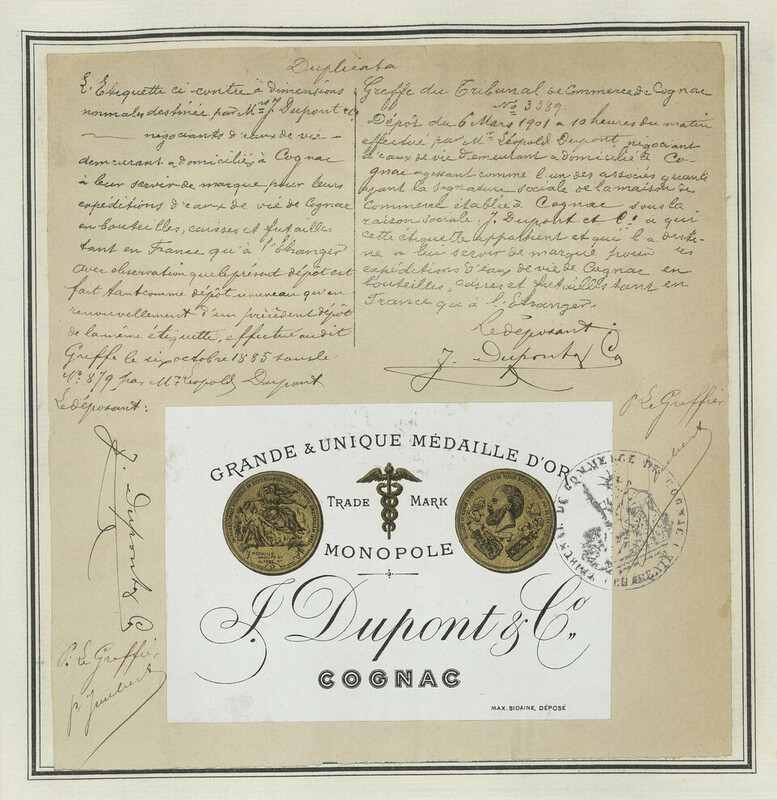 Duplicata
L'Etiquette ci-contre à dimensions
normales destinée par Mrs J. Dupont & Co
négociants d'eaux de vie
demeurant & domiciliés à Cognac
à leur servir de marque pour leurs
expéditions d'eaux de vie de Cognac
en bouteilles, caisses et futailles
tant en France qu'à l'Etranger
avec observation que le présent dépôt est
fait tant comme dépôt nouveau qu'en
renouvellement d'un précédent dépôt
de la même étiquette, effectué au dit
Greffe le six octobre 1885 sous le
No 879 par Mr Léopold Dupont
Le déposant:
J. Dupont & Co
P. Le Greffier
Greffe du Tribunal de Commerce de Cognac
No 3389.
Dépôt du 6 Mars 1901 à 10 heures du matin
effectué par Mr Léopold Dupont, négociant
d'eaux de vie demeurant & domicilié à Co-
gnac agissant comme l'un des associés gérants
ayant la signature sociale de la maison de
Commerce établie à Cognac sous la
raison sociale: J. Dupont et Co à qui
cette étiquette appartient et qui l'a desti-
né à lui servir de marque pour ses
expéditions d'eaux de vie de Cognac en
bouteilles, caisses et futailles tant en
France qu'à l'Etranger.
Le déposant:
J. Dupont & Co
P. Le Greffier
GRANDE & UNIQUE MÉDAILLE D'OR
TRADE MARK
MONOPOLE
J. Dupont & Co.
COGNAC
MAX. SIDAINE, DÉPOSÉ
TRIBUNAL DE COMMERCE DE COGNAC
CHARENTE